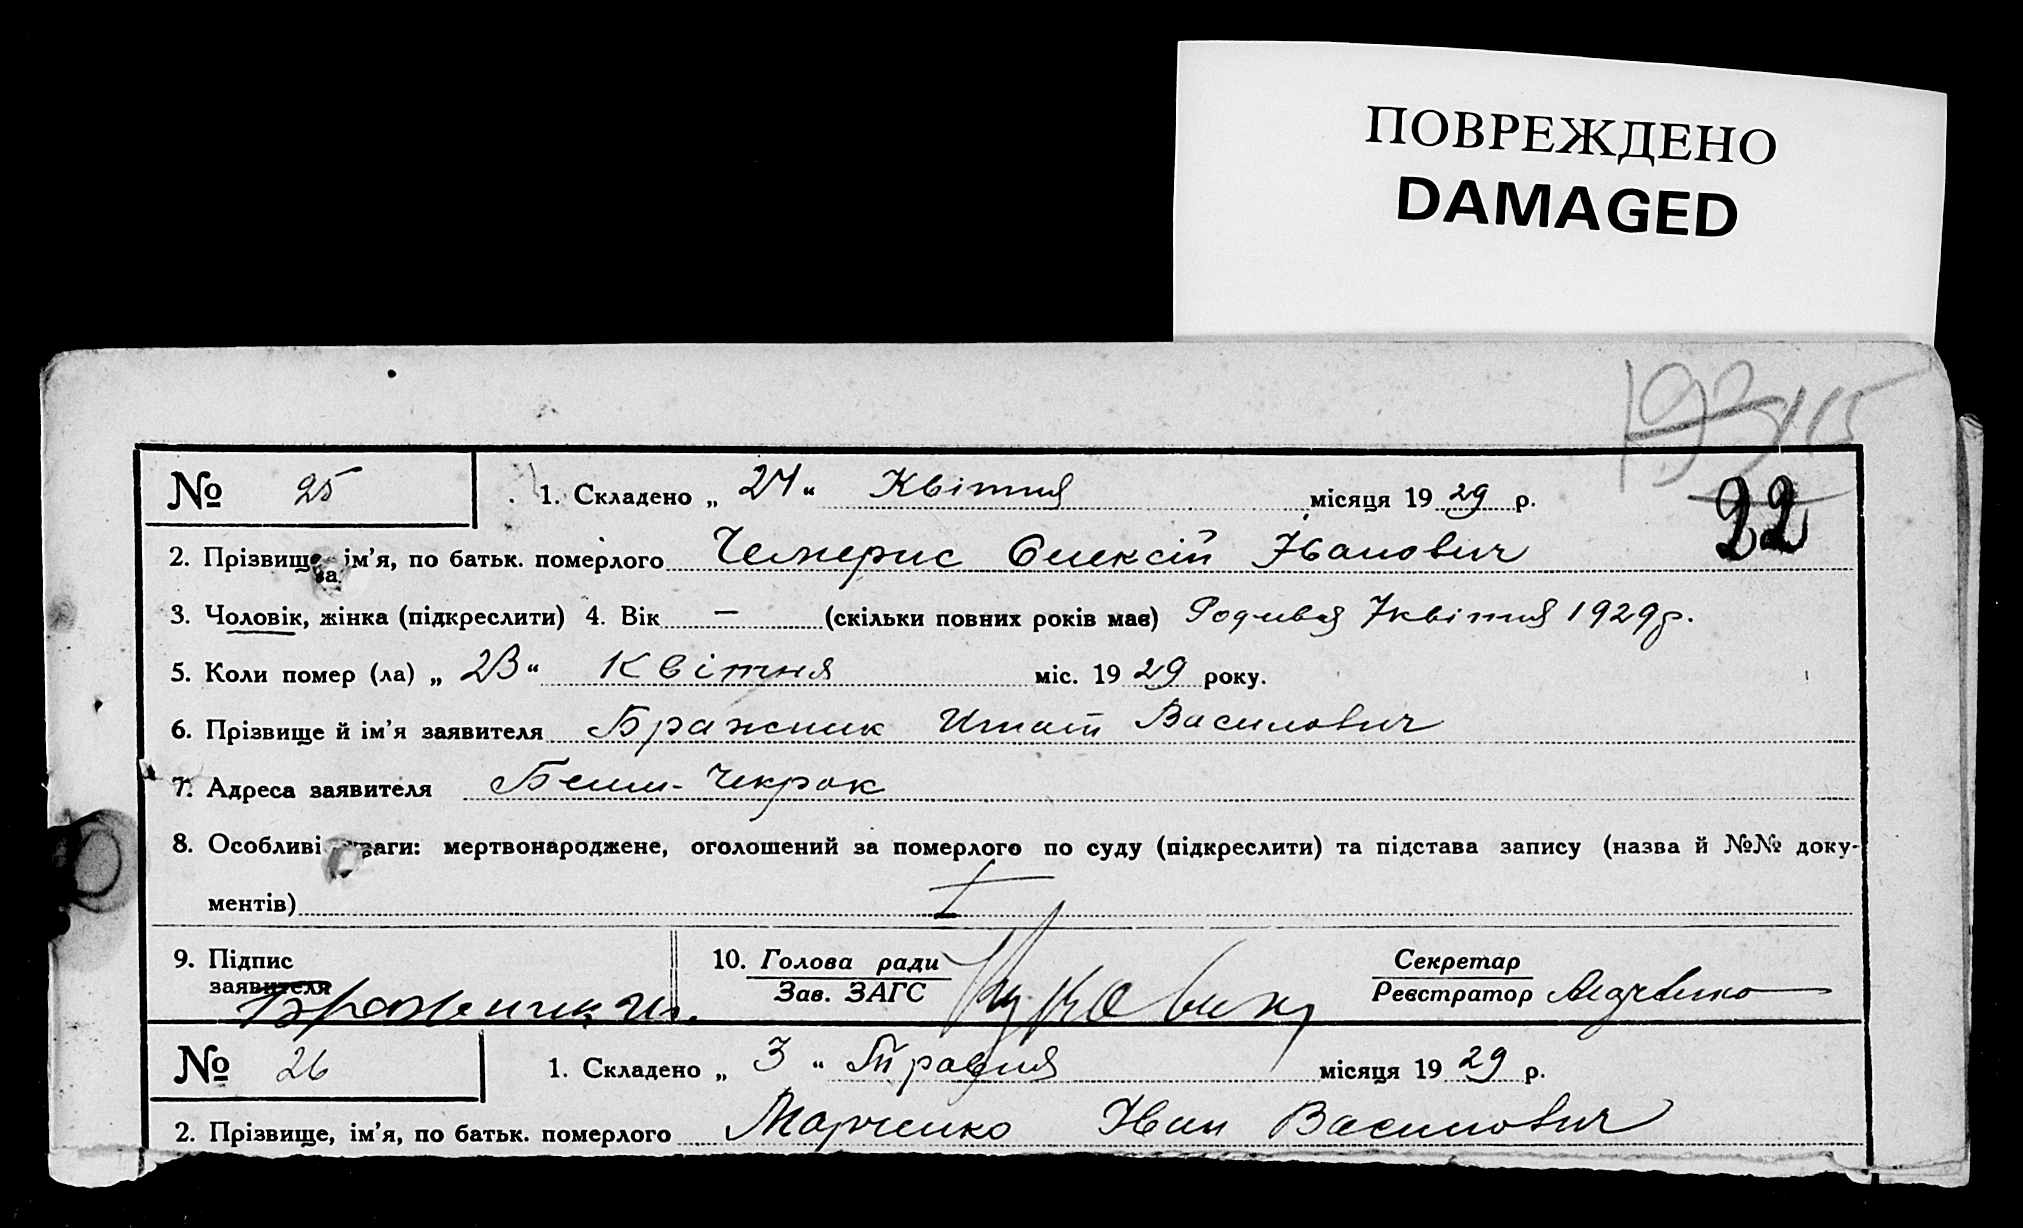 ПОВРЕЖДЕНО
DAMAGED
22
№ 25 1. Складено „ 24 “ Квітня місяця 19 29 р.
2. Прізвище ім’я, по батьк. померлого Чемерис Олексій Іванович
3. Чоловік, жінка (підкреслити) 4. Вік — (скільки повних років має) Родивсь 7 квітня 1929 р.
5. Коли помер (ла) „ 23 “ Квітня міс. 19 29 року.
6. Прізвище й ім’я заявителя Бражник Игнат Василович
7. Адреса заявителя Беши-Чекрак
8. Особливі уваги: мертвонароджене, оголошений за померлого по суду (підкреслити) та підстава запису (назва й №№ доку-
ментів)
9. Підпис заявителя Бражник
10. Голова ради
Зав. ЗАГС
Секретар
Реєстратор
№ 26 1. Складено „ 3 “ Травня місяця 19 29 р.
2. Прізвище, ім’я, по батьк. померлого Марченко Іван Василович